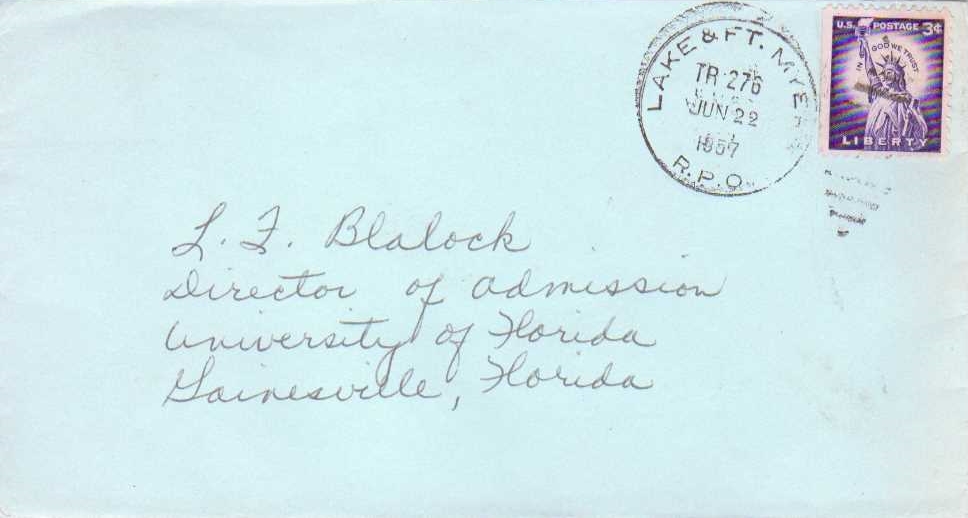 LAKE & FT. MYERS
TR 276
JUN 22
1957
R.P.O.
U.S. POSTAGE 3¢
IN GOD WE TRUST
LIBERTY
L. F. Blalock
Director of Admission
University of Florida
Gainesville, Florida